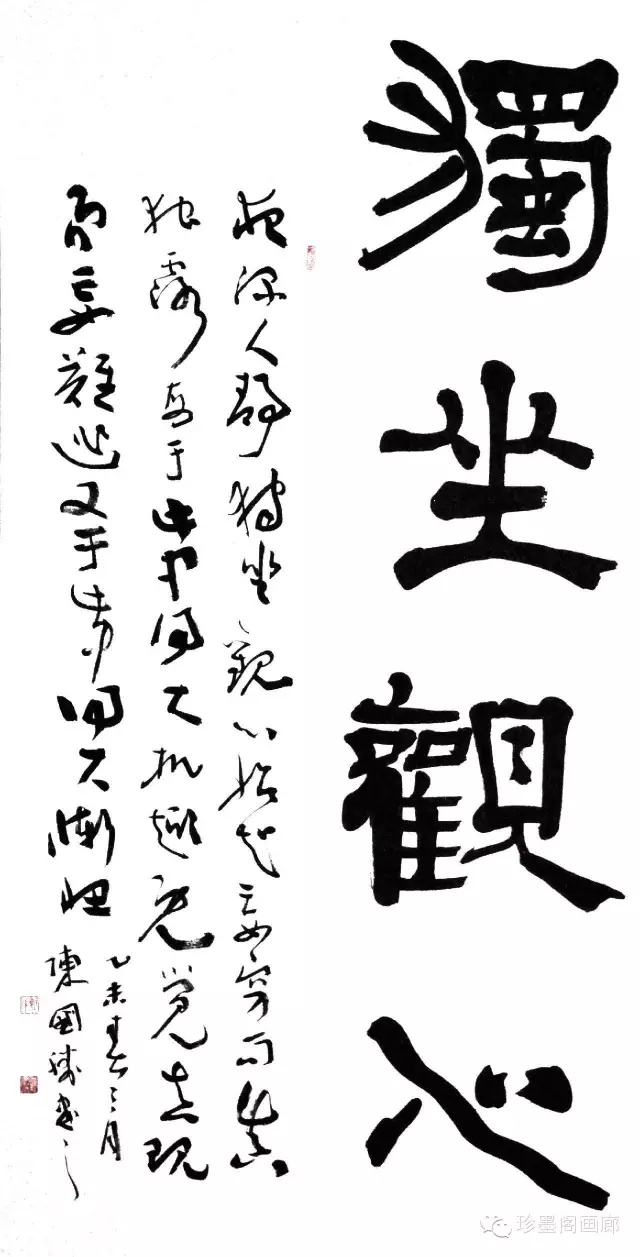 獨坐觀心
夜深人靜獨坐觀心始知妄窮而真
独露每于此中得大机趣既覺真現
而妄難逃又于此中得大慚忸
乙未春三月
陳國勝書之
珍墨阁画廊